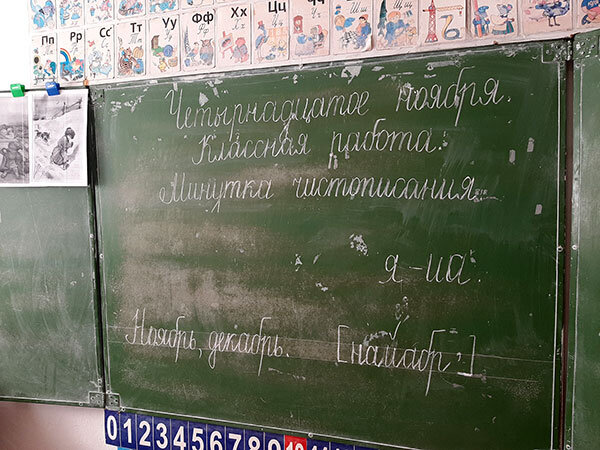 Пп Рр Сс Тт Уу Фф Хх Цц
Четырнадцатое ноября.
Классная работа.
Минутка чистописания
я-иа.
Ноябрь, декабрь. [найабр']
0 1 2 3 4 5 6 7 8 9 10